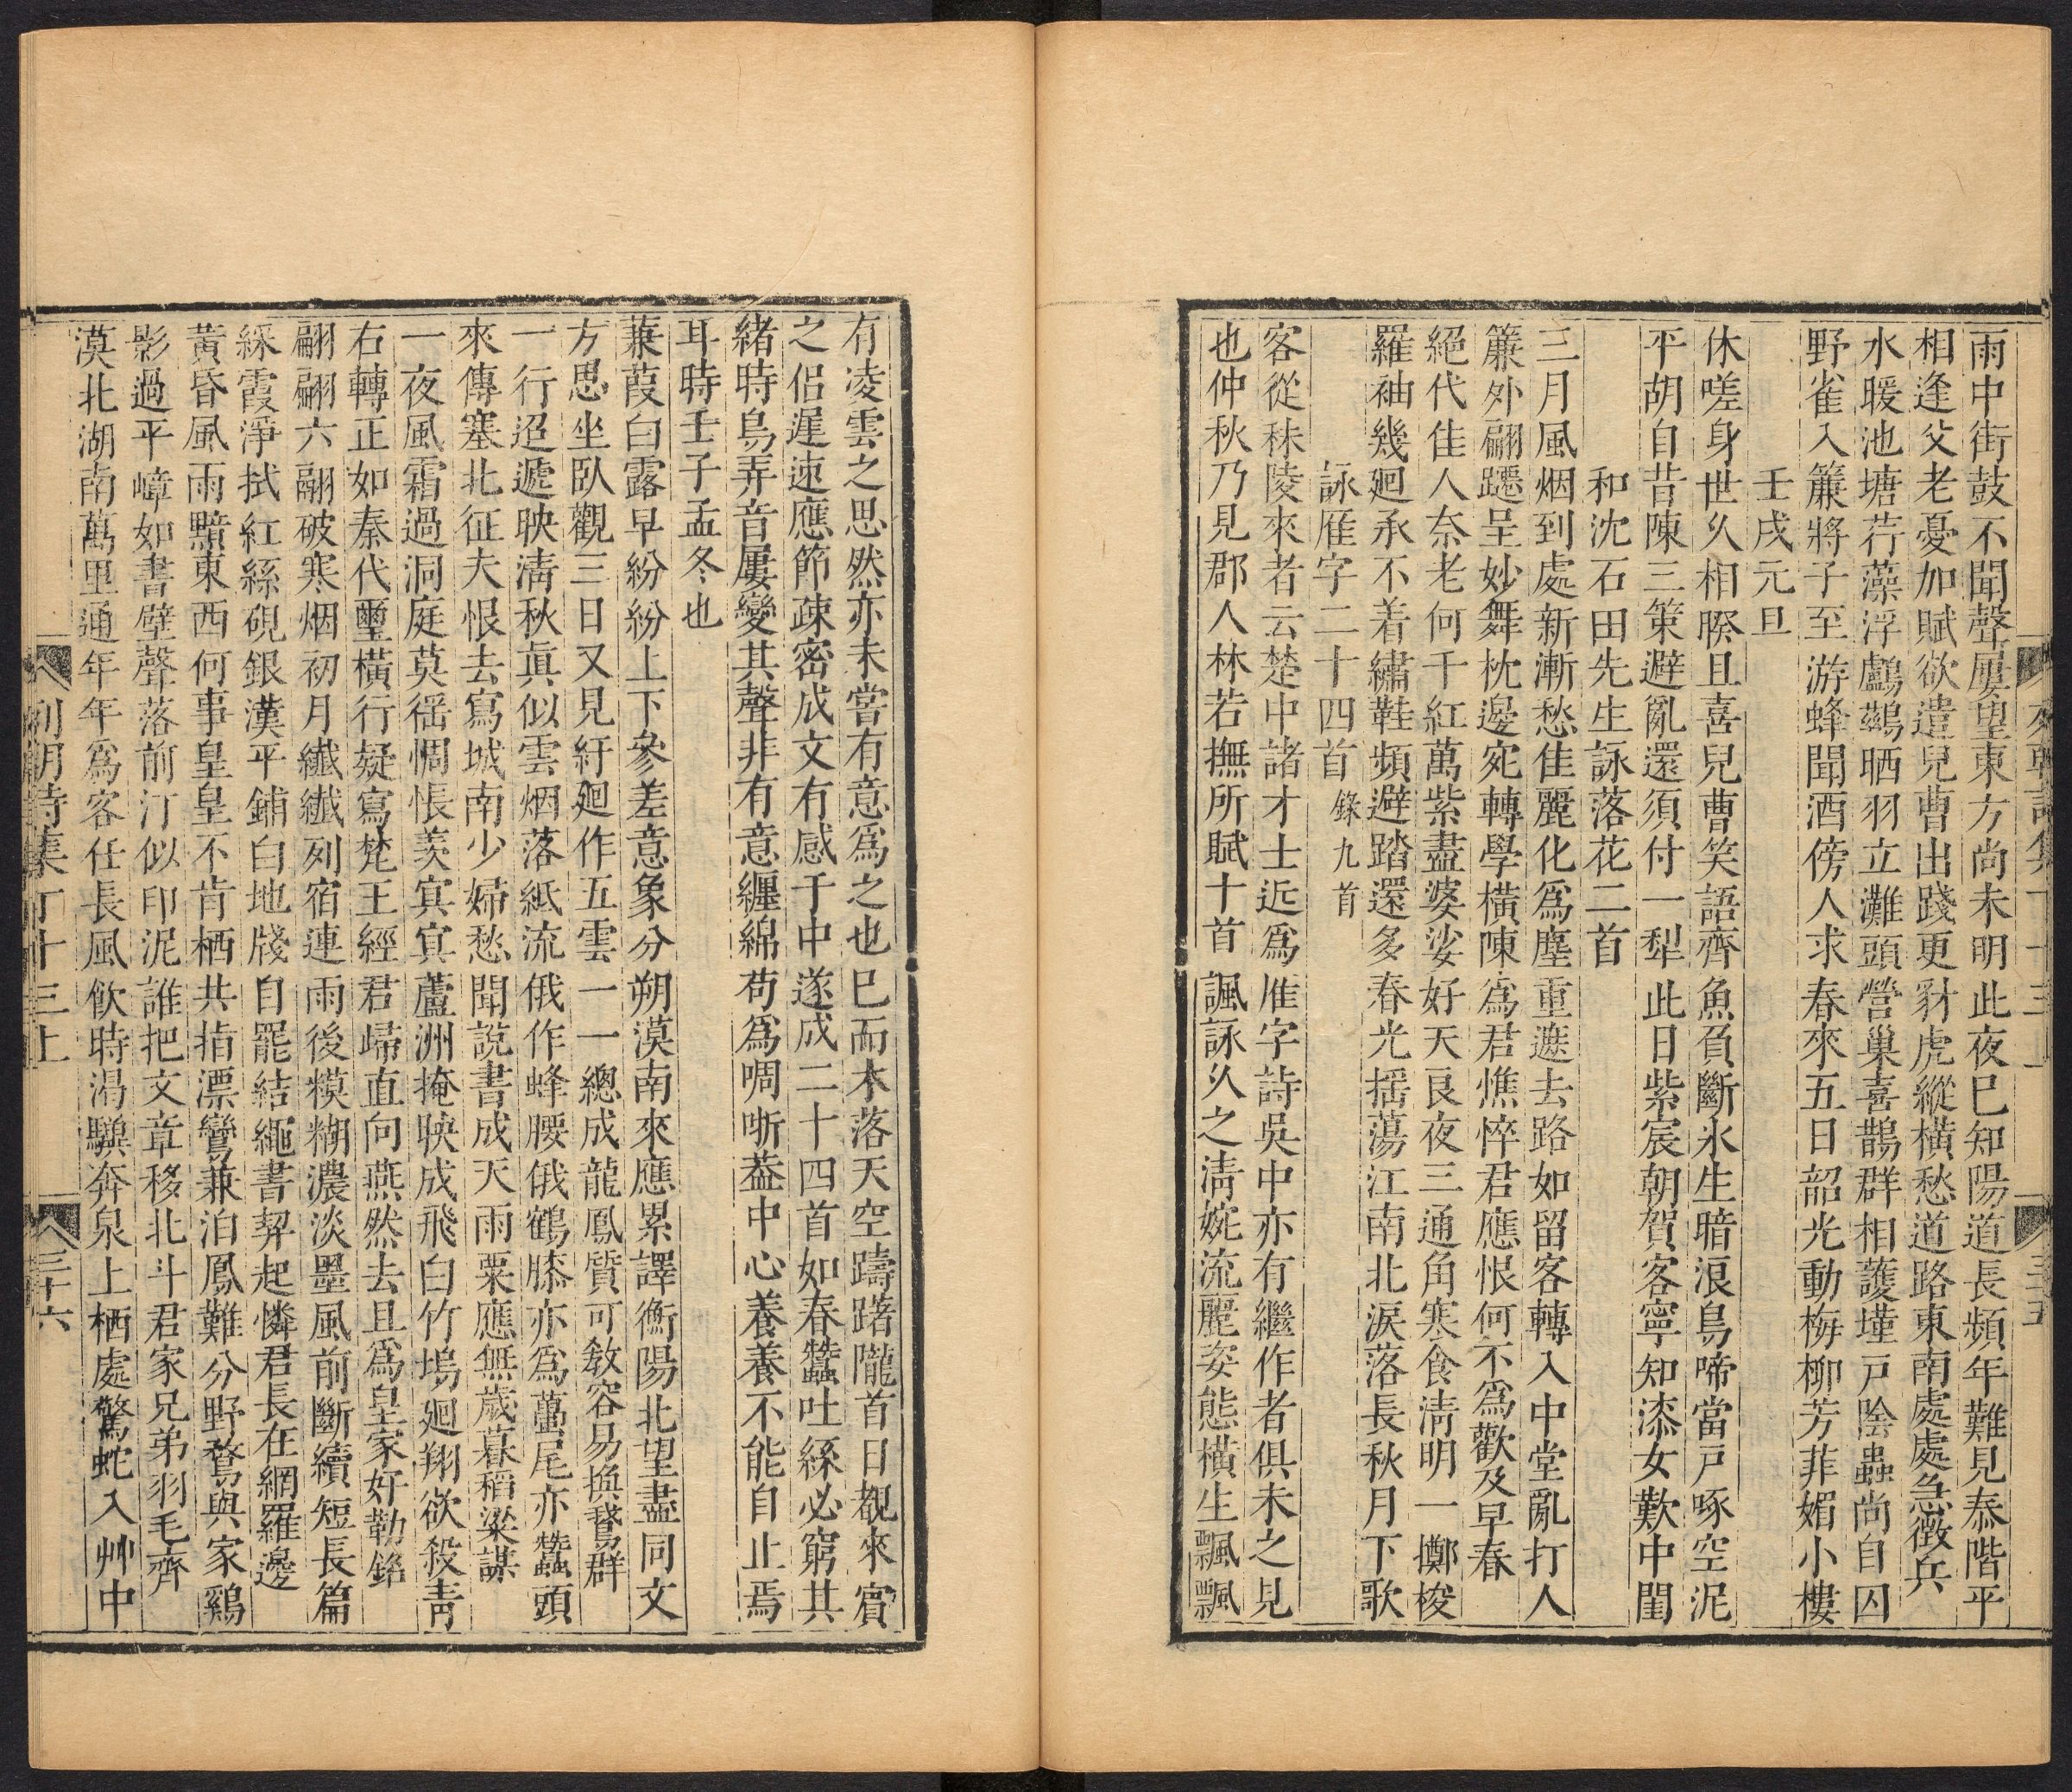 雨中街鼓不聞聲屢望東方尚未明此夜巳知陽道長頻年難見泰階平
相逢父老憂加賦欲遣兒曹出踐更豺虎縱橫愁道路東南處處急徵兵
水暖池塘荇藻浮鸕鷀晒羽立灘頭營巢喜鵲群相護墐戸陰蟲尚自囚
野雀入簾將子至游蜂聞酒傍人求春來五日韶光動梅柳芳菲媚小樓
壬戌元旦
休嗟身世久相睽且喜兒曹笑語齊魚負斷氷生暗浪鳥啼當戸啄空泥
平胡自昔陳三策避亂還須付一犁此日紫宸朝賀客寧知漆女歎中閨
和沈石田先生詠落花二首
三月風烟到處新漸愁佳麗化為塵重遮去路如留客轉入中堂亂打人
簾外翩躚呈妙舞枕邊宛轉學橫陳為君憔悴君應恨何不為歡及早春
絕代佳人奈老何千紅萬紫盡婆娑好天良夜三通角寒食清明一擲梭
羅袖幾廻承不着繡鞋頻避踏還多春光揺蕩江南北淚落長秋月下歌
詠雁字二十四首 錄九首
客從秣陵來者云楚中諸才士近為雁字詩吳中亦有繼作者俱未之見
也仲秋乃見郡人林若撫所賦十首諷詠久之清婉流麗姿態橫生飄飄
有凌雲之思然亦未嘗有意爲之也巳而木落天空躊躇隴首日覩來賓
之侶遲速應節疎密成文有感于中遂成二十四首如春蠶吐絲必窮其
緒時鳥弄音屢變其聲非有意纏綿苟爲啁哳葢中心養養不能自止焉
耳時壬子孟冬也
蒹葭白露早紛紛上下參差意象分朔漠南來應累譯衡陽北望盡同文
方思坐臥觀三日又見紆廻作五雲一一總成龍鳳質可敎容易換鵞群
一行迢遞映清秋眞似雲烟落紙流俄作蜂腰俄鶴膝亦爲蠆尾亦蠶頭
來傳塞北征夫恨去寫城南少婦愁聞說書成天雨粟應無歲暮稻粱謀
一夜風霜過洞庭莫徭惆悵羨㝠㝠蘆洲掩映成飛白竹塢廻翔欲殺青
右轉正如秦代璽橫行疑寫梵王經君歸直向燕然去且爲皇家好勒銘
翩翩六翮破寒烟初月纖纖列宿連雨後模糊濃淡墨風前斷續短長篇
綵霞淨拭紅絲硯銀漢平鋪白地牋自罷結繩書契起憐君長在網羅邊
黃昏風雨黯東西何事皇皇不肯栖共指漂鸞兼泊鳳難分野鶩與家鷄
影過平嶂如書壁聲落前汀似印泥誰把文章移北斗君家兄弟羽毛齊
漠北湖南萬里通年年爲客任長風飮時渴驥奔泉上栖處驚蛇入艸中
列朝詩集丁十三上 三十六